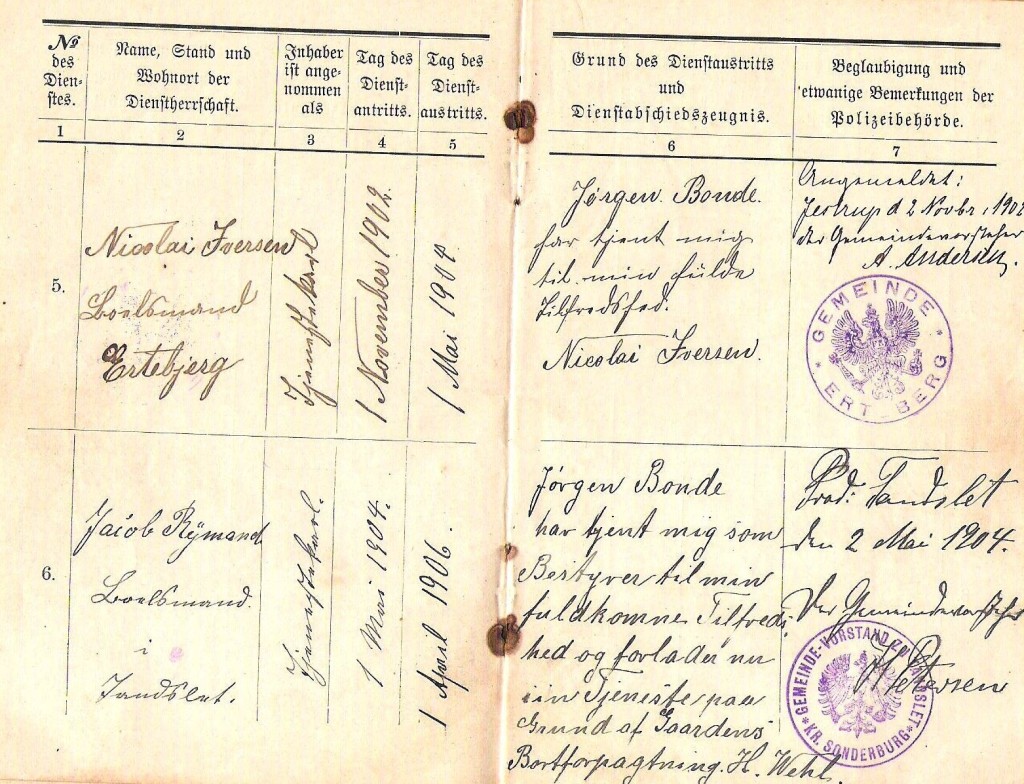 № des Dien-stes.
Name, Stand und
Wohnort der
Dienstherrschaft.
Inhaber
ist ange-
nommen
als
Tag des
Dienst-
antritts.
Tag des
Dienst-
austritts.
1
2
3
4
5
5.
Nicolai Iversen
Boelsmand
Ertebjerg
Tjenestekarl
1 November 1902.
1 Mai 1904.
6.
Jacob Rÿmand
Boelsmand.
i
Tandslet.
Tjenestekarl.
1 Mai 1904.
1 April 1906.
Grund des Dienstaustritts
und
Dienstabschiedszeugnis.
Beglaubigung und
etwanige Bemerkungen der
Polizeibehörde.
6
7
Jørgen Bonde.
har tjent mig
til min fülde
Tilfredshed.
Nicolai Iversen.
Angemeldet:
d 2 Novbr. 1902
der Gemeindevorsteher
A. Andersen.
GEMEINDE
ERT-BERG
Jørgen Bonde
har tjent mig som
Bestyrer til min
fuldkomne Tilfreds
hed og forlader nu
sin Tjeneste paa
Grund af Gaardens
Bortforpagtning. H. Wehl.
Prod: Tandslet
den 2 Mai 1904.
Der Gemeindevorsteher
H Petersen
GEMEINDE-VORSTAND ZU TANDSLET
KR. SONDERBURG